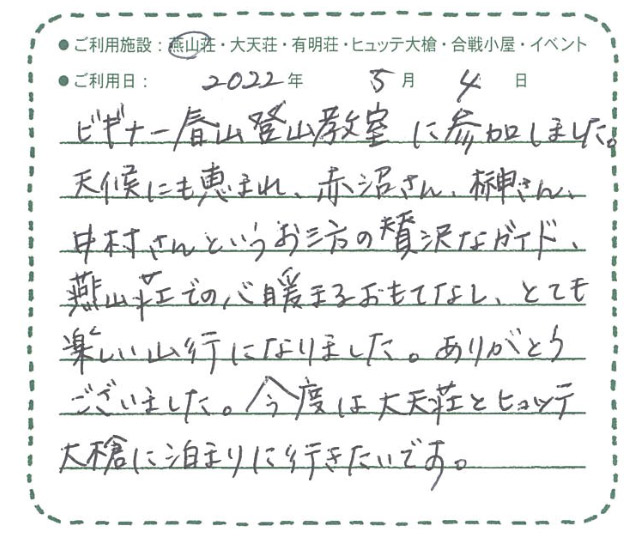 ●ご利用施設：燕山荘・大天荘・有明荘・ヒュッテ大槍・合戦小屋・イベント
●ご利用日： 2022年 5月 4日
ビギナー春山登山教室に参加しました。
天候にも恵まれ、赤沼さん、榊さん、
中村さんというお三方の贅沢なガイド、
燕山荘での心暖まるおもてなし、とても
楽しい山行になりました。ありがとう
ございました。今度は大天荘とヒュッテ
大槍に泊まりに行きたいです。